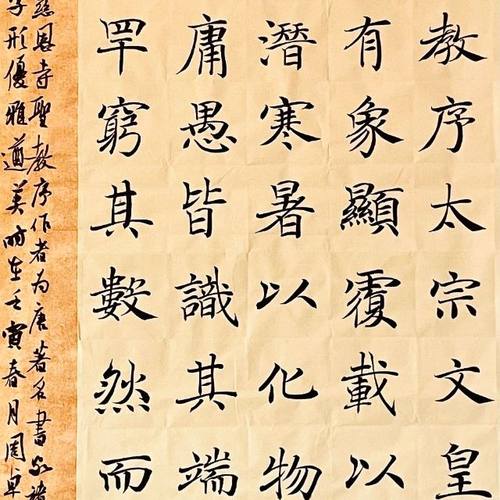 教序太宗文皇
有象顯覆載以
潛寒暑以化物
庸愚皆識其端
罕窮其數然而
慈恩寺聖教序作者为唐著名書家褚
字形優雅遒美時在壬寅春月周卓